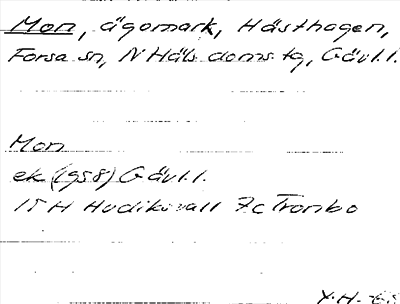 Mon, ägomark, Hästhagen,
Forsa sn, N Häls. doms. tg, Gävl.l.
Mon
ek (1958) Gävl.l.
15 H Hudiksvall 7c Trombo
Y.H. -65